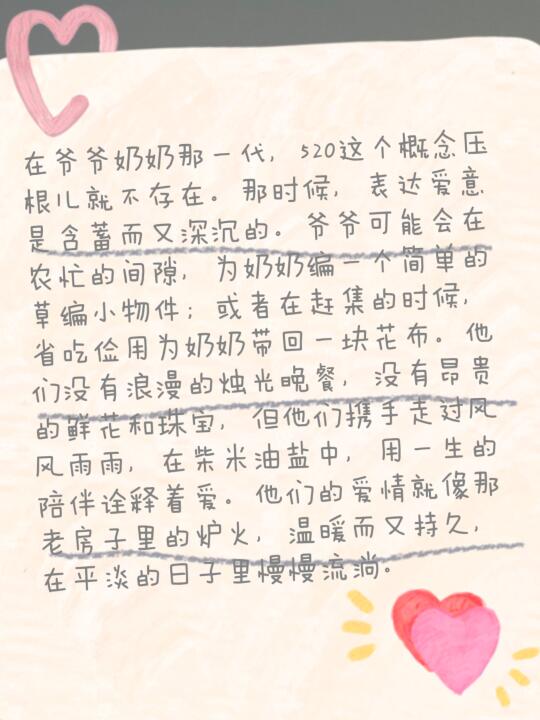 在爷爷奶奶那一代，520这个概念压
根儿就不存在。那时候，表达爱意
是含蓄而又深沉的。爷爷可能会在
农忙的间隙，为奶奶编一个简单的
草编小物件；或者在赶集的时候，
省吃俭用为奶奶带回一块花布。他
们没有浪漫的烛光晚餐，没有昂贵
的鲜花和珠宝，但他们携手走过风
风雨雨，在柴米油盐中，用一生的
陪伴诠释着爱。他们的爱情就像那
老房子里的炉火，温暖而又持久，
在平淡的日子里慢慢流淌。